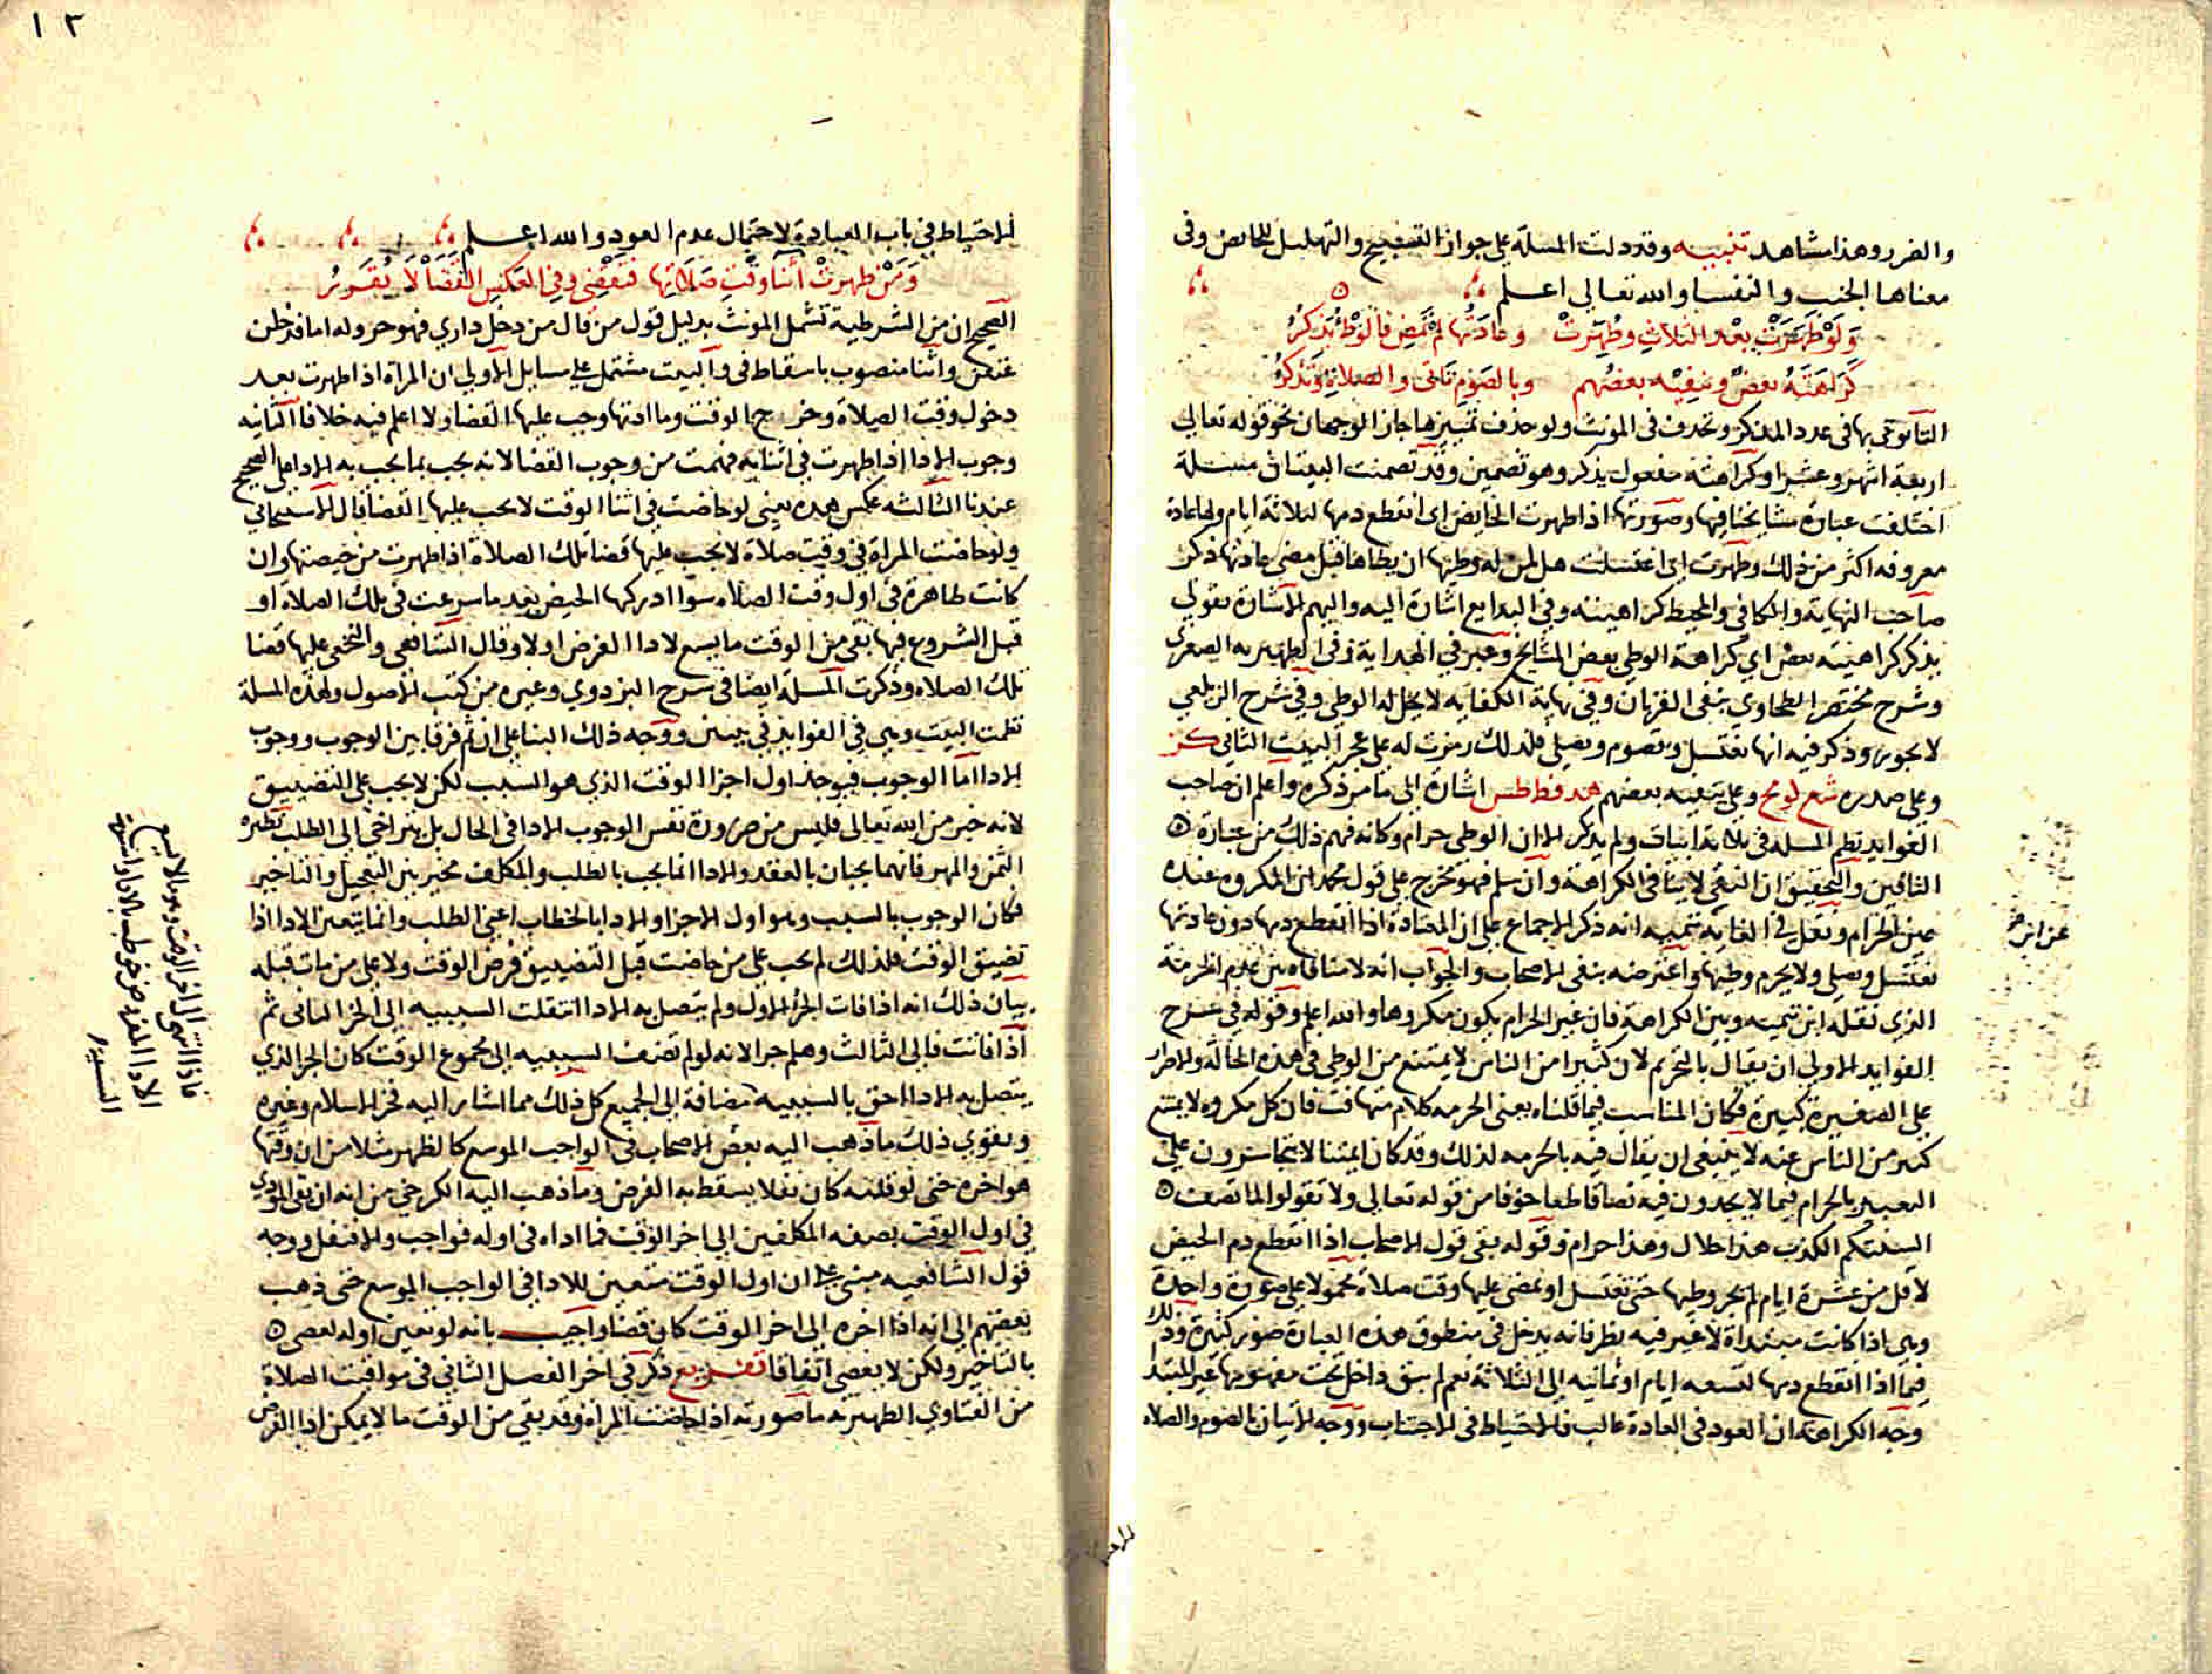 والضرر وهذا مشاهد تنبيه وقد دلت المسلة على جواز التسبيح والتهليل للحايض وفى
معناها الجنب والنفسا والله تعالى اعلم
وَلَوْ طَهَرَتْ بعْد الثلاثِ وطُهِرَتْ وعادَتُها لمْ تَمْضِ فالوَطْءُ يُذْكَرُ
كَرَاهَتَهُ بعضٌ وينفِيْه بعضُهم وبالصَومِ تَأتى والصلاةِ وتَذْكُرُ
التا توتى بها فى عدد المذكر وتحذف فى المونث ولو حذف تمييزها جاز الوجهان نحو قوله تعالى
اربعة اشهر وعشرا وكراهته مفعول يذكر وهو تضمين وقد تضمنت البيتان مسلة
اختلفت عبارة مشايخنا فيها وصورتها اذا طهرت الحايض اى انقطع دمها لثلاثة ايام ولها عادة
معروفه اكثر من ذلك وطهرت اى اغتسلت هل لمن له وطيها ان يطاها قبل مضى عادتها ذكر
صاحب النهاية والكافى والمحيط كراهيته وفى البدايع اشارة اليه واليهم الاشارة بقولى
يذكر كراهيته بعض اي كراهة الوطى بعض المشايخ وعبر في الهداية وفى الظهيريه الصغرى
وشرح مختصر الطحاوى بنفى القربان وفى نهاية الكفايه لا يحل له الوطى وفى شرح الزيلعي
لا يجوز وذكر فيه انها تغتسل وتصوم وتصلى فلذلك رمزت له على عجز البيت الثاني
وعلى صدره وعلى ينفيه بعضهم اشارة الى ما مر ذكره واعلم ان صاحب
الفوايد نظم المسله فى ثلاثة ابيات ولم يذكر الا ان الوطى حرام وكانه فهم ذلك من عبارة
النافين والتحقيق ان النفى لا ينافى الكراهة وان سلم فهو تخرج على قول محمد ان المكروه عنده
عين الحرام ونقل فى الغاية تنبيه انه ذكر الاجماع على ان المعتادة اذا انقطع دمها دون عادتها
تغتسل وتصلى ولا يحرم وطيها واعترضه بنفى الاصحاب والجواب انه لا منافاة بين عدم الحرمة
الذي نقله ابن تيميه وبين الكراهة فان غير الحرام يكون مكروها والله اعلم وقوله في شرح
الفوايد الاولى ان يقال بالتحريم لان كثيرا من الناس لا يمتنع من الوطى فى هذه الحالة والاصرار
على الصغيرة كبيرة فكان المناسب فيما قلناه يعنى الحرمه كلام متهافت فان كل مكروه لا يمتنع
كثير من الناس عنه لا ينبغى ان يقال فيه بالحرمه لذلك وقد كان ايمتنا لا يتجاسرون على
التعبير بالحرام فيما لا يجدون فيه نصا قاطعا خوفا من قوله تعالى ولا تقولوا لما تصف
السنتكم الكذب هذا حلال وهذا حرام وقوله بقى قول الاصحاب اذا انقطع دم الحيض
لاقل من عشرة ايام لم يجز وطيها حتى تغتسل او يمضى عليها وقت صلاة محمولا على صورة واحدة
وهى اذا كانت مبتداة لا غير فيه نظر فانه يدخل فى منطوق هذه العبارة صور كثيرة وذلك
فيما اذا انقطع دمها لتسعه ايام او ثمانيه الى الثلاثة نعم لم يبق داخل تحت مفهومها غير المبتد
وجه الكراهة ان العود فى العادة غالب فالاحتياط فى الاجتناب ووجه الاتيان بالصوم والصلاه
١٣
الاحتياط فى باب العبادة لاحتمال عدم العود والله اعلم
وَمَنْ طهرتْ أثنا وقْتِ صَلاَتِها فتَقْضِى وفِى العَكْسِ القَضَا لَا يُقَررُ
الصحيح ان من الشرطية تشمل المونث بدليل قول من قال من دخل داري فهو حر وله اما فدخلن
عتقن واثنا منصوب باسقاط فى والبيت مشتمل على مسايل الاولى ان المراة اذا طهرت بعد
دخول وقت الصلاة وخرج الوقت وما ادتها وجب عليها القضا ولا اعلم فيه خلافا الثانيه
وجوب الادا اذا طهرت فى اثنايه فهمت من وجوب القضا لانه يجب بما يجب به الادا على الصحيح
عندنا الثالثه عكس هذه يعنى لو حاضت فى اثنا الوقت لا يجب عليها القضا قال الاسبيجابي
ولو حاضت المراة فى وقت صلاة لا يجب عليها قضا تلك الصلاة اذا طهرت من حيضتها وان
كانت طاهرة فى اول وقت الصلاه سوا ادركها الحيض بعد ما شرعت فى تلك الصلاة او
قبل الشروع فيها بقى من الوقت ما يسع لادا الفرض اولا وقال الشافعى والنخعى عليها قضا
تلك الصلاه وذكرت المسلة ايضا فى شرح البزدوي وغيره من كتب الاصول ولهذه المسلة
نظمت البيت وهى فى الفوايد فى بيتين ووجه ذلك البنا على ان ثم فرقا بين الوجوب ووجوب
الادا اما الوجوب فيوجد اول اجزا الوقت الذي هو السبب لكن لا يجب على التضييق
لانه خير من الله تعالى فليس من ضرورة نفس الوجوب الادا فى الحال بل يتراخى الى الطلب نظيره
الثمن والمهر فانهما يجبان بالعقد والادا انما يجب بالطلب والمكلف مخير بين التعجيل والتاخير
فكان الوجوب بالسبب وهو اول الاجزا والادا بالخطاب اعنى الطلب وانما يتعين الادا اذا
تضيق الوقت فلذلك لم يجب على من حاضت قبل التضييق فرض الوقت ولا على من مات قبله
بيان ذلك انه اذا فات الجزا الاول ولم يتصل به الادا انتقلت السببيه الى الجزا الثانى ثم
اذا فاتت فالى الثالث وهلم جرا لانه لو لم تضف السببيه الى مجموع الوقت كان الجز الذي
يتصل به الادا احق بالسببيه مضافة الى الجميع كل ذلك مما اشار اليه فخر الاسلام وغيره
ويقوي ذلك ما ذهب اليه بعض الاصحاب فى الواجب الموسع كالظهر مثلا من ان وقتها
هو اخره حتى لو قدمه كان نفلا يسقط به الفرض وما ذهب اليه الكرخى من انه ان بقى المودي
فى اول الوقت بصفه المكلفين الى اخر الوقت فما اداه فى اوله فواجب والا فنفل ووجه
قول الشافعيه مبنى على ان اول الوقت متعين للادا فى الواجب الموسع حتى ذهب
بعضهم الى انه اذا اخره الى اخر الوقت كان قضا واجيب بانه لو تعين اوله لعصى
بالتاخير ولكن لا يعصى اتفاقا تفريع ذكر فى اخر الفصل الثانى فى مواقيت الصلاة
من الفتاوي الظهيرية ما صورته اذا حاضت المراة وقد بقى من الوقت ما لا يمكن ادا الفرض